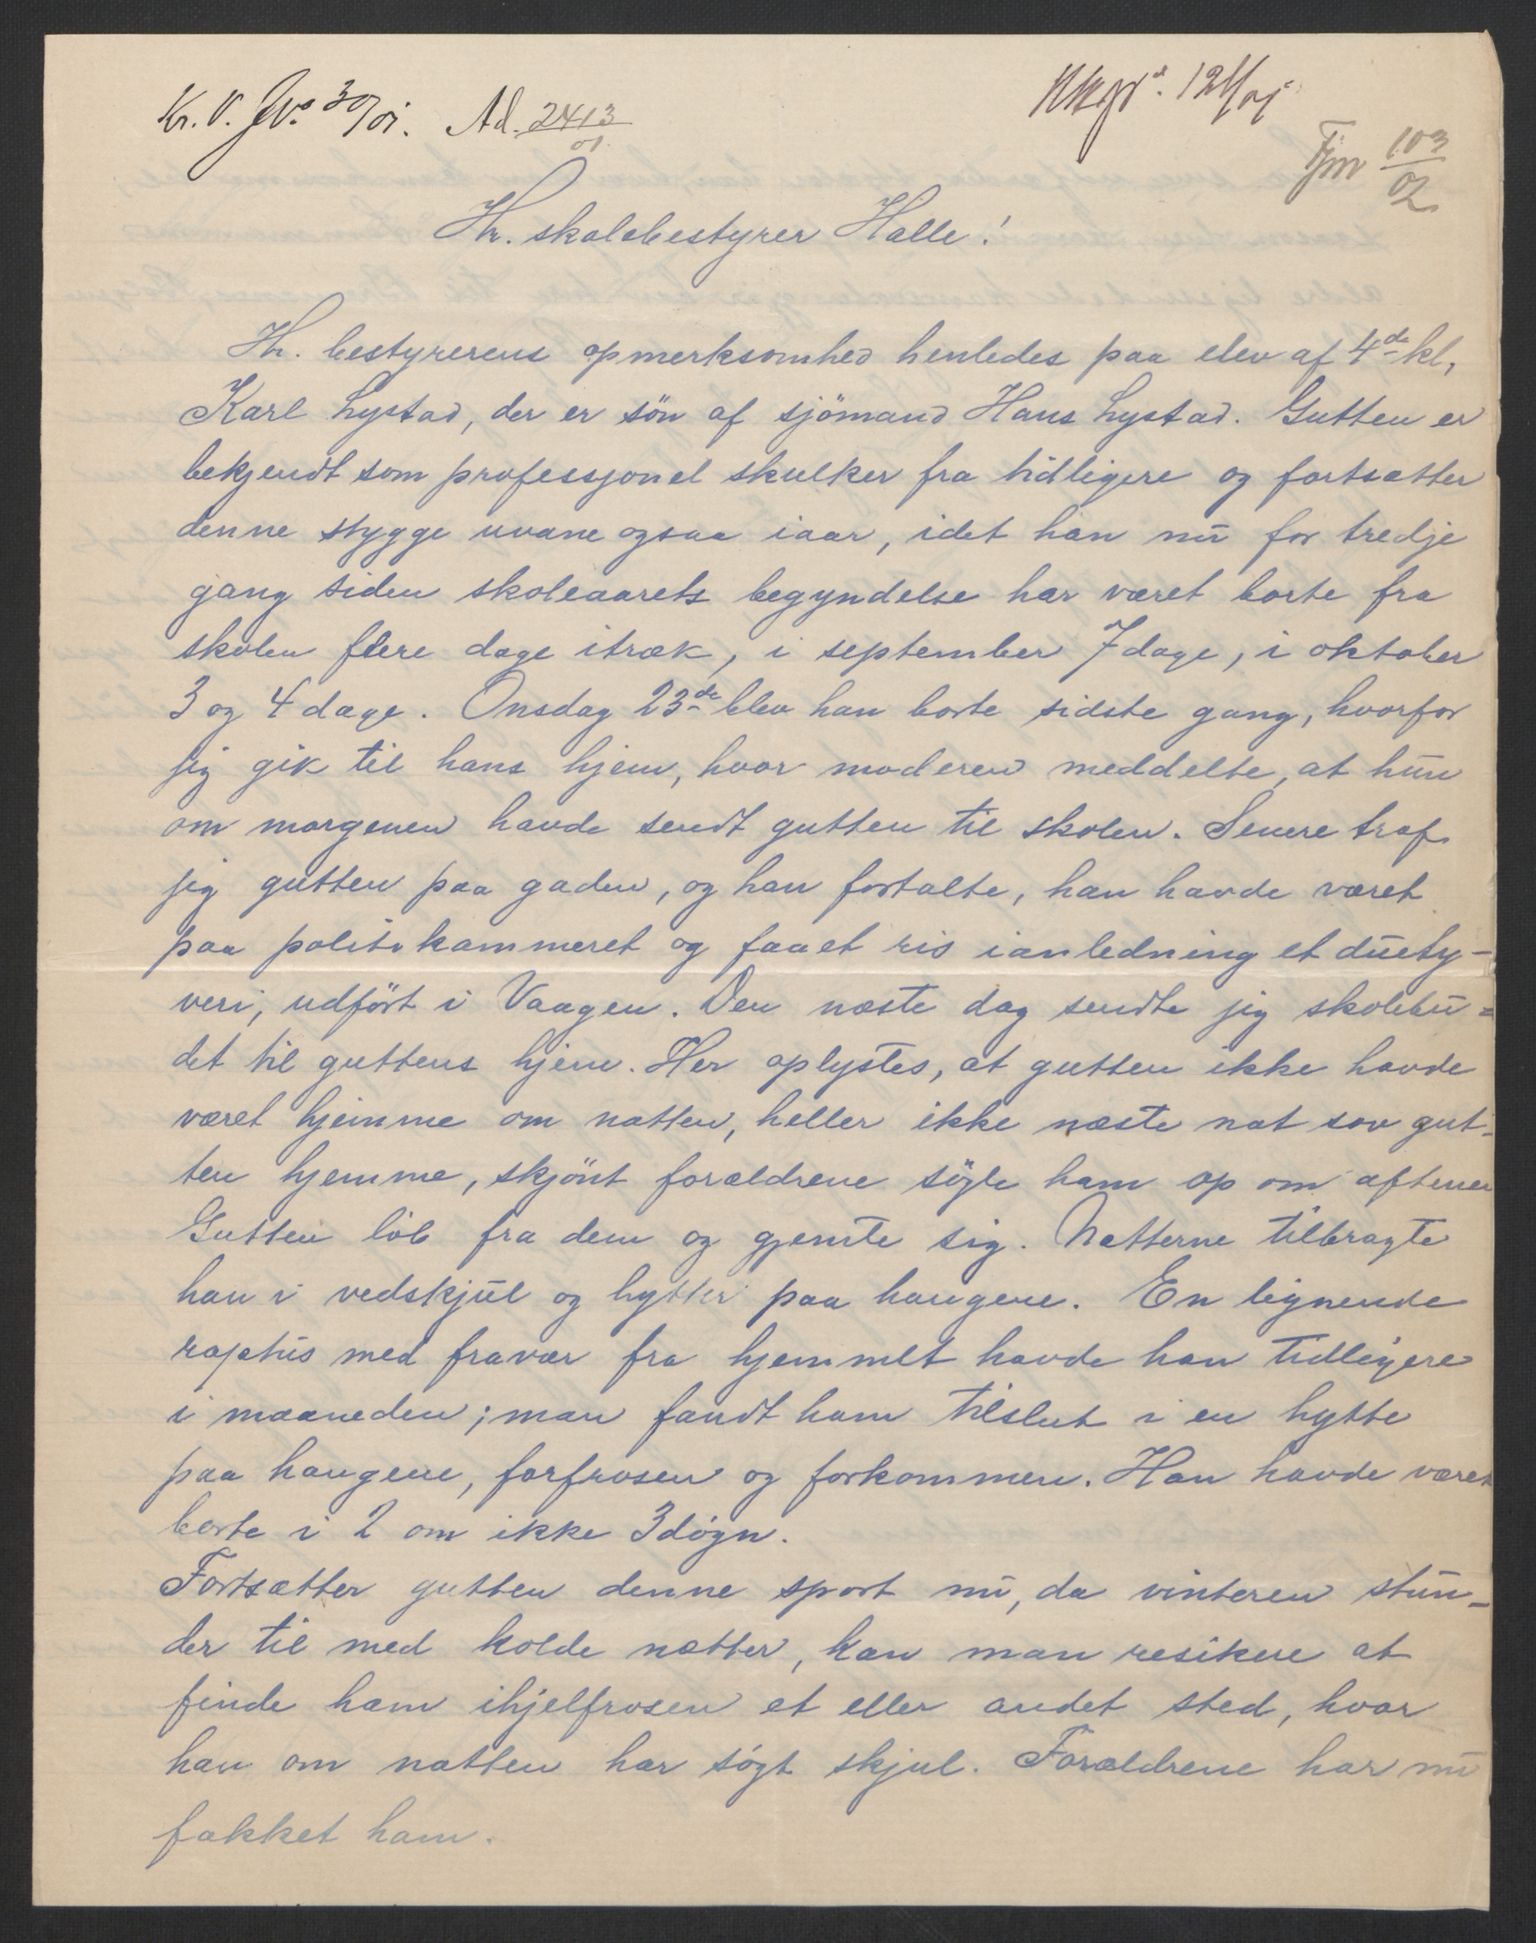 Kr. V. Jvo 30/01. Ad. 2413/01
12/1/01
Fjm 103/02
Hr. skolebestyrer Halle!
Hr. bestyrerens opmerksomhed henledes paa elev af 4de kl,
Karl Lystad, der er søn af sjömand Hans Lystad. Gutten er
bekjendt som professjonel skulker fra tidligere og fortsætter
denne stygge uvane ogsaa iaar, idet han nu for tredje
gang siden skoleaarets begyndelse har været borte fra
skolen flere dage itræk, i september 7 dage, i oktober
3 og 4 dage. Onsdag 23de blev han borte sidste gang, hvorfor
jeg gik til hans hjem, hvor moderen meddelte, at hun
om morgenen havde sendt gutten til skolen. Senere traf
jeg gutten paa gaden, og han fortalte, han havde været
paa politikammeret og faaet ris ianledning et duety-
veri, udfört i Vaagen. Den næste dag sendte jeg skolebu-
det til guttens hjem. Her oplystes, at gutten ikke havde
været hjemme om natten, heller ikke næste nat sov gut-
ten hjemme, skjönt forældrene sögte ham op om aftenen
Gutten löb fra dem og gjemte sig. Nætterne tilbragte
han i vedskjul og hytter paa haugene. En lignende
raptus med fravær fra hjemmet havde han tidligere
i maaneden; man fandt ham tilslut i en hytte
paa haugene, forfrosen og forkommen. Han havde været
borte i 2 om ikke 3 døgn.
Fortsætter gutten denne sport nu, da vinteren stun-
der til med kolde nætter, kan man resikere at
finde ham ihjelfrosen et eller andet sted, hvor
han om natten har søgt skjul. Forældrene har nu
fakket ham.